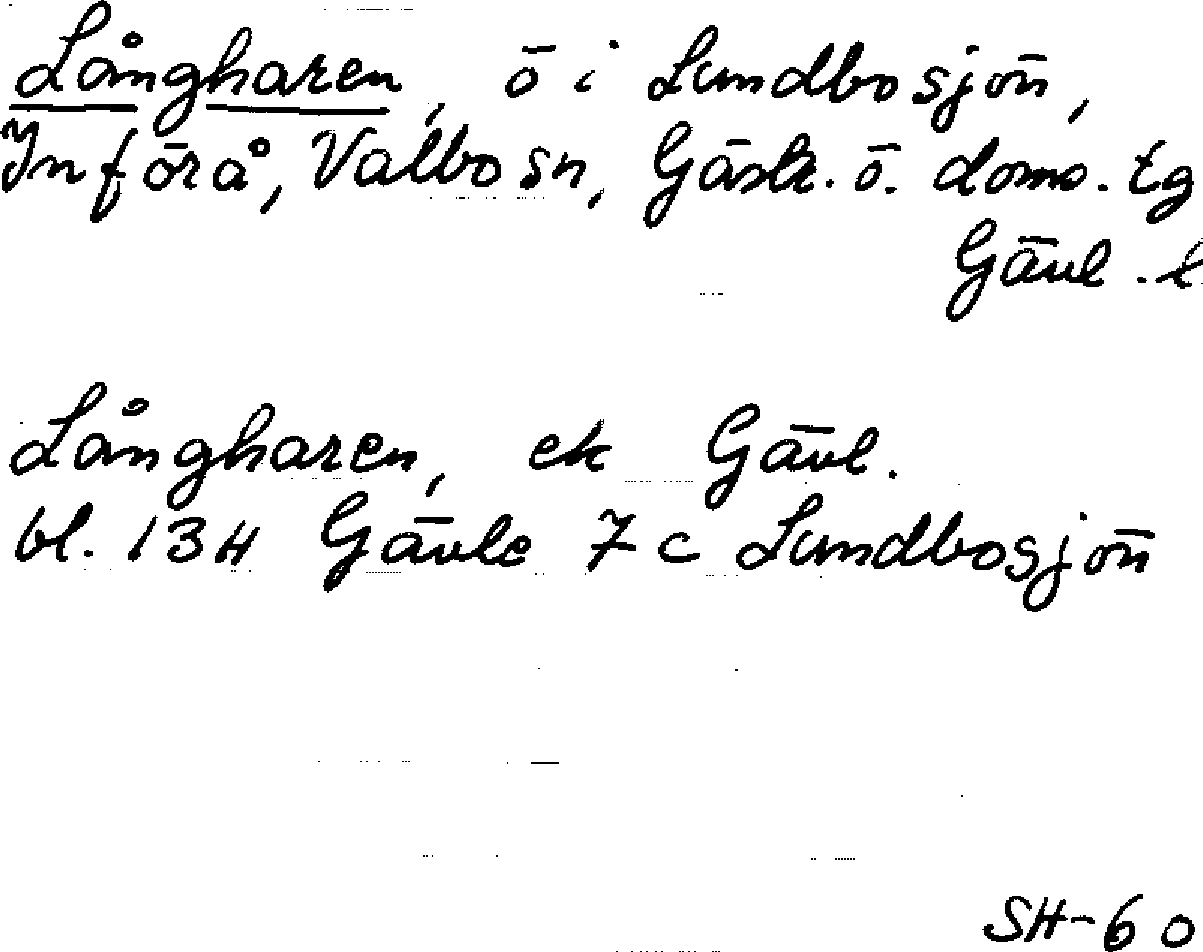 Långharen, ö i Lundbosjön,
In förå, Valbo sn, Gästr. ö. doms. tg
Gävl. l
Långharen, ek Gävl.
bl. 13H Gävle 7c Lundbosjön
SH-60